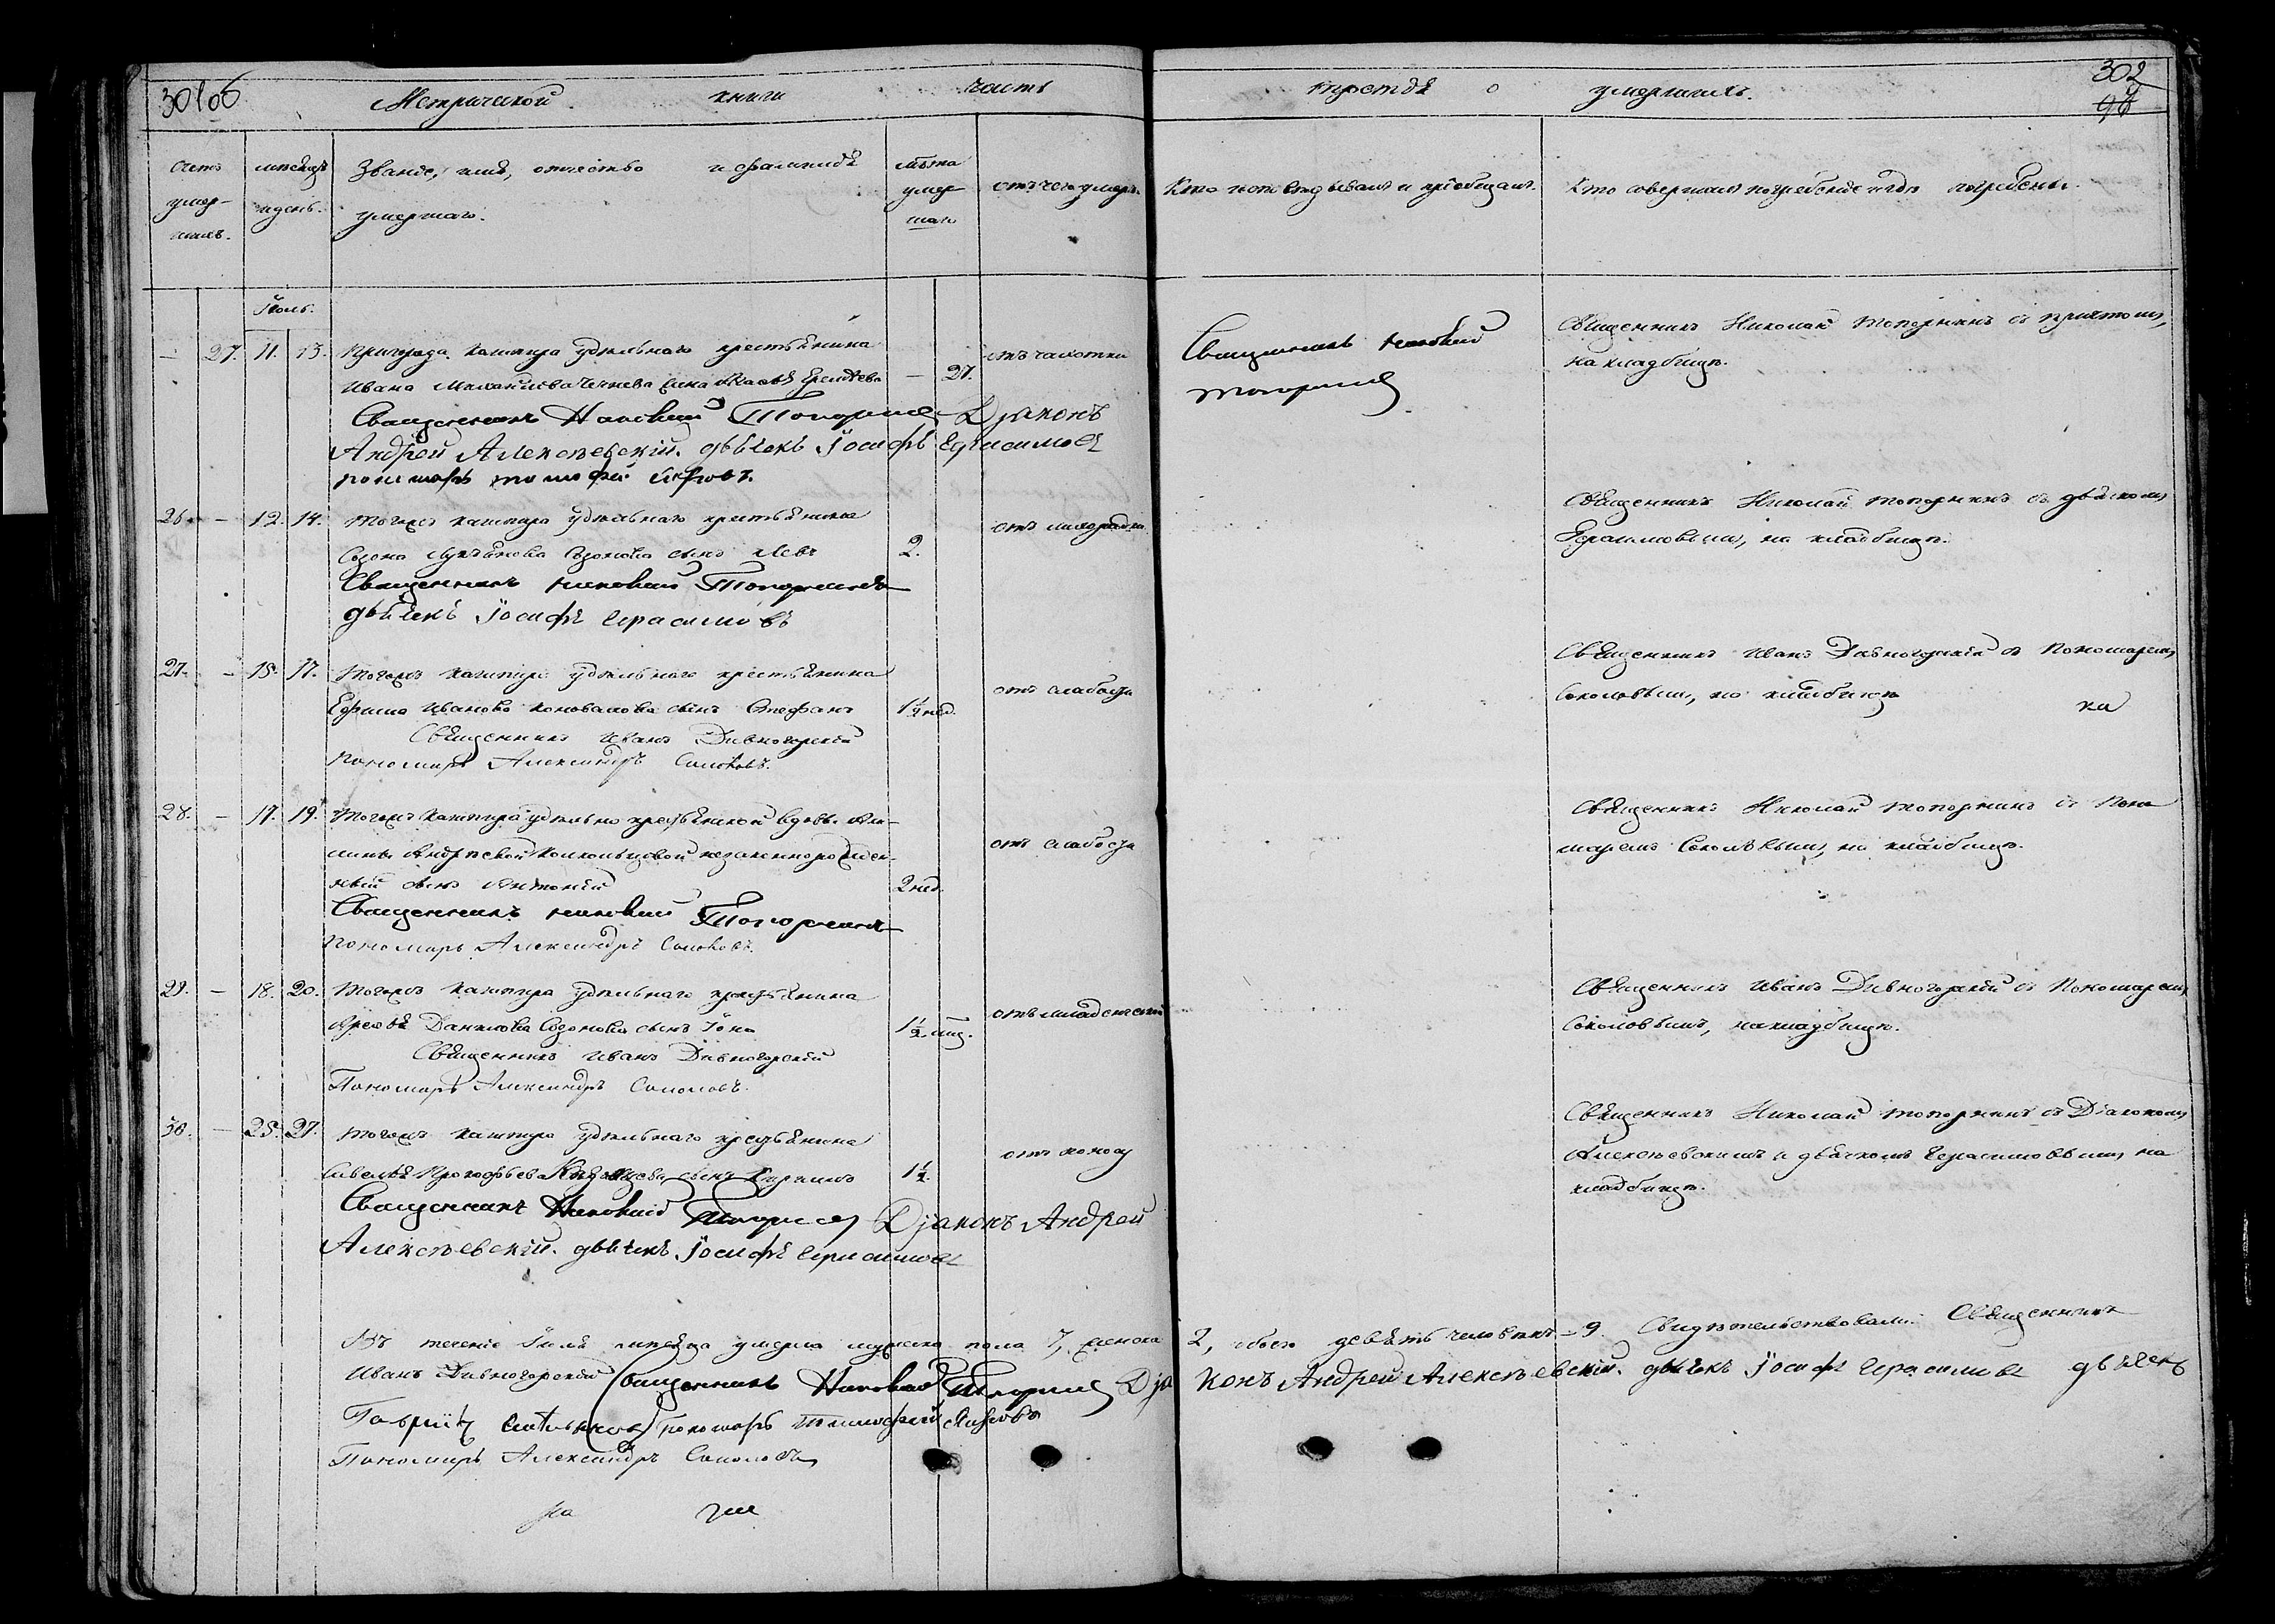 301об
302
98
Метрической книги часть третія о умершихъ.
Счетъ умер-шихъ.
мѣсяцъ и день.
Званіе, имя, отчество и фамилія умершаго.
лѣта умер-шаго
отъ чего умеръ.
Кто исповѣдывалъ и пріобщалъ.
Кто совершалъ погребеніе и гдѣ погребены.
Іюль.
– 27. 11. 13. Пригорода Кашпира удѣльнаго крестьянина
Ивана Михайлова жена – 27. отъ чахотки
Священникъ Николай
Топорнинъ
Священникъ Николай Топорнинъ съ причтомъ,
на кладбищѣ.
Священникъ Николай Топорнинъ Діаконъ
Андрей Алексѣевскій. дьячекъ Іосифъ Герасимовъ
пономарь Тимофей
26. – 12. 14. Тогожъ Кашпира удѣльнаго крестьянина
Созона Лукьянова Созонова сынъ Левъ 2. отъ лихорадки
Священникъ Николай Топорнинъ съ дьячкомъ
Герасимовымъ, на кладбищѣ.
Священникъ Николай Топорнинъ
дьячекъ Іосифъ Герасимовъ
27. – 15. 17. Тогожъ Кашпира удѣльнаго крестьянина
Ефима Иванова Коновалова сынъ Стефанъ 1½ нед. отъ слабости
Священникъ Иванъ Дивногорскій съ Пономаремъ
Соколовымъ, на кладбищѣ
на
Священникъ Иванъ Дивногорскій
Пономарь Александръ Соколовъ.
28. – 17. 19. Тогожъ Кашпира удѣльно крестьянской вдовы
Андреевой незаконнорожден-
ный сынъ Антоній 2 нед. отъ слабости
Священникъ Николай Топорнинъ съ Поно
маремъ Соколовымъ, на кладбищѣ.
Священникъ Николай Топорнинъ
Пономарь Александръ Соколовъ.
29. – 18. 20. Тогожъ Кашпира удѣльнаго крестьянина
Данилова Созонова сынъ Іона 1½ мѣс. отъ младенческой
Священникъ Иванъ Дивногорскій съ Пономаремъ
Соколовымъ, на кладбищѣ.
Священникъ Иванъ Дивногорскій
Пономарь Александръ Соколовъ.
30. – 25. 27. Тогожъ Кашпира удѣльнаго крестьянина
Савелья Прокофьева сынъ 1½. отъ поносу
Священникъ Николай Топорнинъ съ Діакономъ
Алексѣевскимъ и дьячкомъ Герасимовымъ на
кладбищѣ.
Священникъ Николай Топорнинъ Діаконъ Андрей
Алексѣевскій. дьячекъ Іосифъ Герасимовъ
Въ теченіе Іюля мѣсяца умерло мужеска пола 7, женска 2, обоего девять человѣкъ – 9. Свидѣтельствовали: Священникъ
Иванъ Дивногорскій Священникъ Николай Топорнинъ Діаконъ Андрей Алексѣевскій. дьячекъ Іосифъ Герасимовъ дьячекъ
Гавріилъ пономарь Тимофей
Пономарь Александръ Соколовъ